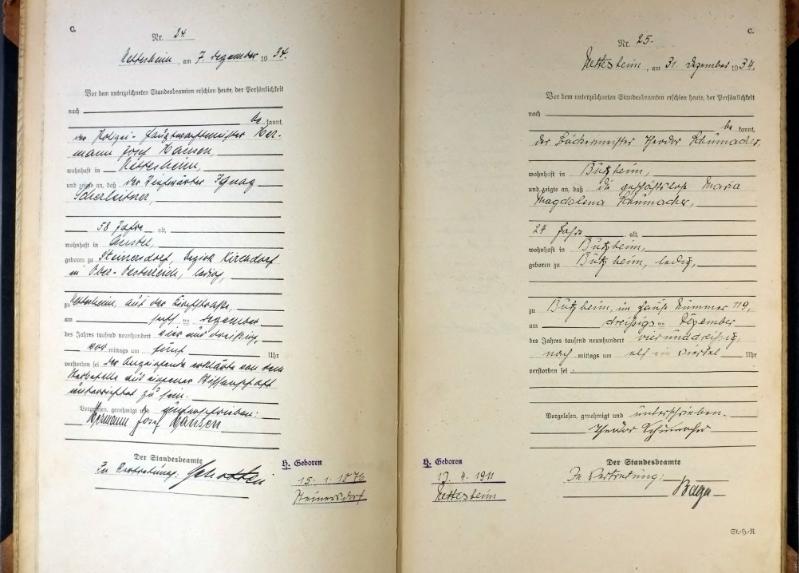 C.
Nr. 24
Nettesheim, am 7. Dezember 1934.
Vor dem unterzeichneten Standesbeamten erschien heute, der Persönlichkeit
nach
be kannt,
der Polizei-Hauptwachtmeister Her-
mann Josef Hansen
wohnhaft in Nettesheim,
und zeigte an, daß der Ignaz
58 Jahre alt,
wohnhaft in
geboren zu Steinersdorf, Bezirk Kirchdorf
in Ober-Oesterreich, ledig,
zu Nettesheim, auf der
am Dezember
des Jahres tausend neunhundert vier und dreißig
mittags um fünf Uhr
verstorben sei. Der Anzeigende erklärte von dem
Sterbefalle aus eigener Wissenschaft
unterrichtet zu sein.
Vorgelesen, genehmigt und unterschrieben:
Hermann Josef Hansen
Der Standesbeamte
In Vertretung:
H. Geboren
15. 1. 1876
Steinersdorf
C.
Nr. 25.
Nettesheim, am 31. Dezember 1934.
Vor dem unterzeichneten Standesbeamten erschien heute, der Persönlichkeit
nach
be kannt,
der Bäckermeister Theodor Schumacher,
wohnhaft in Butzheim,
und zeigte an, daß die geschäftslose Maria
Magdalena Schumacher,
Jahre alt,
wohnhaft in Butzheim,
geboren zu Butzheim, ledig,
zu Butzheim, im Hause Nummer 119,
am dreißigsten Dezember
des Jahres tausend neunhundert vierunddreißig,
nach mittags um elf ein viertel Uhr
verstorben sei.
Vorgelesen, genehmigt und unterschrieben.
Theodor Schumacher
Der Standesbeamte
In Vertretung:
H. Geboren
1911
Nettesheim
St.-H.-R.